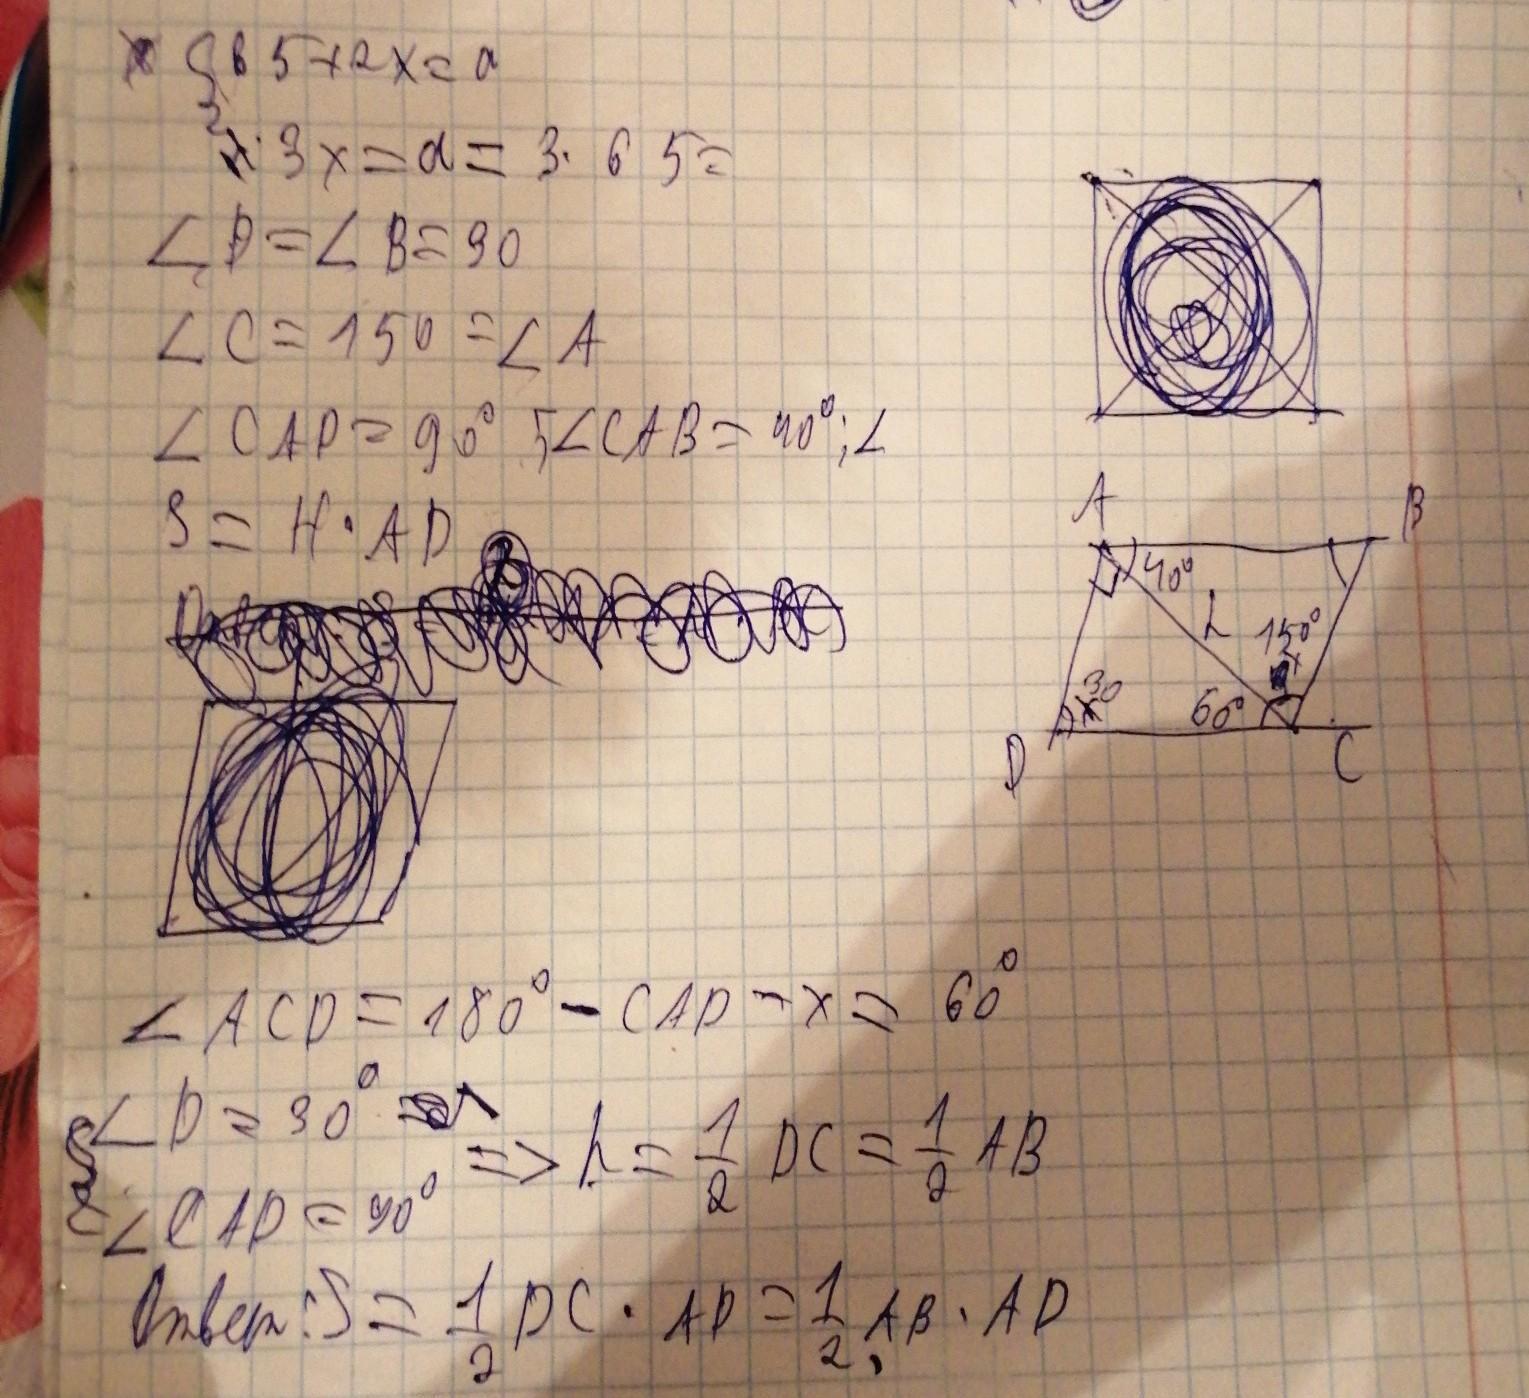 65+2x=a
3x=a=3·65=
∠D=∠B=30
∠C=150=∠A
∠CAD=90°;∠CAB=40°;∠
S=H·AD
A
B
40°
h
150°
x
30
x
60°
D
C
∠ACD=180°-CAD-x=60°
∠D=30°
=>h=1/2 DC=1/2 AB
∠CAD=90°
Ответ:S=1/2 DC·AD=1/2 AB·AD